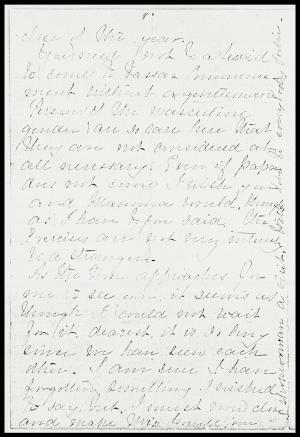 8.
close of the year.
You need not be afraid
to come to Vassar Commence
ment without a gentleman.
Persons of the masculine
gender are so rare here that
they are not considered at
all necessary. Even if papa
does not come I wish you
and Mamma would, though
as I have before said, the
Exercises are not very interest
to a stranger.
As the time approaches for
me to see you, it seems as
though I could not wait
for it, dearest, it is so long
since we have seen each
other. I am sure I have
forgotten something I wished
to say, but I must now close
and make